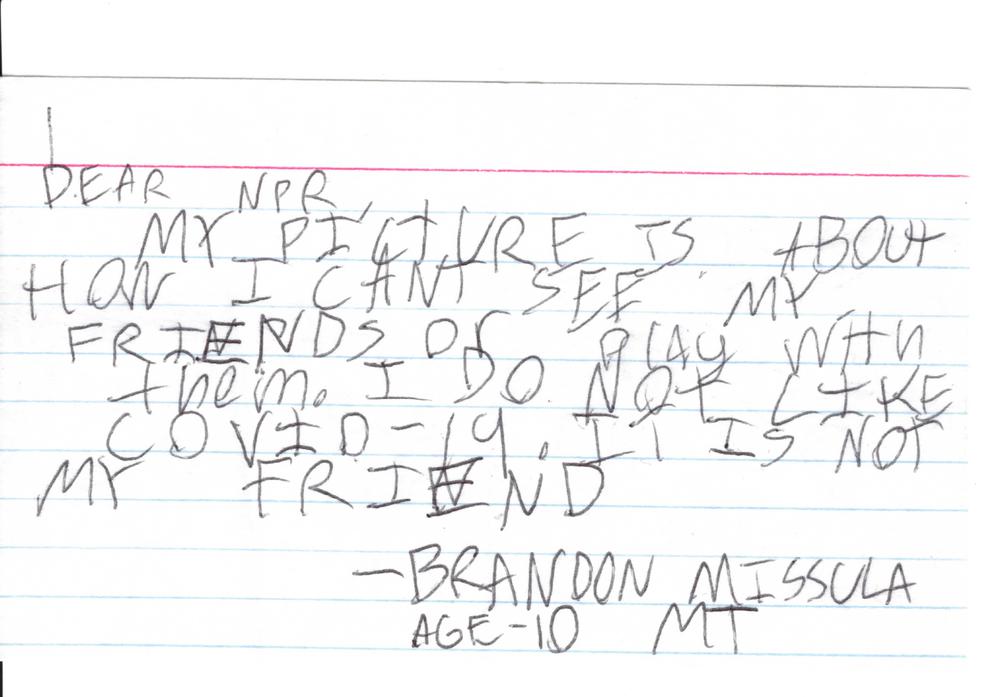 DEAR NPR,
MY PICTURE IS ABOUT
HOW I CANT SEE MY
FRIENDS Or PlAy WITh
them. I DO NOT LIKE
COVID-19. IT IS NOT
MY FRIEND
-BRANDON MISSULA
AGE-10 MT